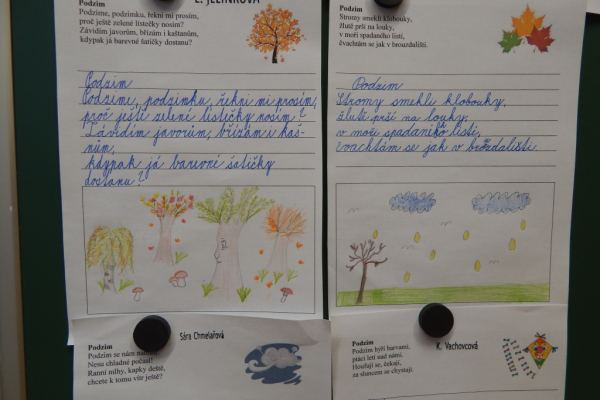 E. JELÍNKOVÁ
Podzim
Podzime, podzimku, řekni mi prosím,
proč ještě zelené lístečky nosím?
Závidím javorům, břízám i kaštanům,
kdypak já barevné šatičky dostanu?
Podzim
Podzime, podzimku, řekni mi prosím,
proč ještě zelené lístičky nosím?
Závidím javorům, břízám i kaš-
nům,
kdypak já barevné šatičky
dostanu?
Podzim
Podzim se nám
Nese chladné počasí!
Ranní mlhy, kapky deště,
chcete k tomu vítr ještě?
Sára Chmelařová
Podzim
Stromy smekli klobouky,
žluté prší na louky,
v moři spadaného listí,
čvachtám se jak v brouzdališti.
Podzim
Stromy smekli klobouky,
žlutě prší na louky,
v moři spadaného listí,
čvachtám se jak v brozdališti.
Podzim
Podzim hýří barvami,
ptáci letí nad námi.
Houfují se, čekají,
za sluncem se chystají.
K. Vachovcová